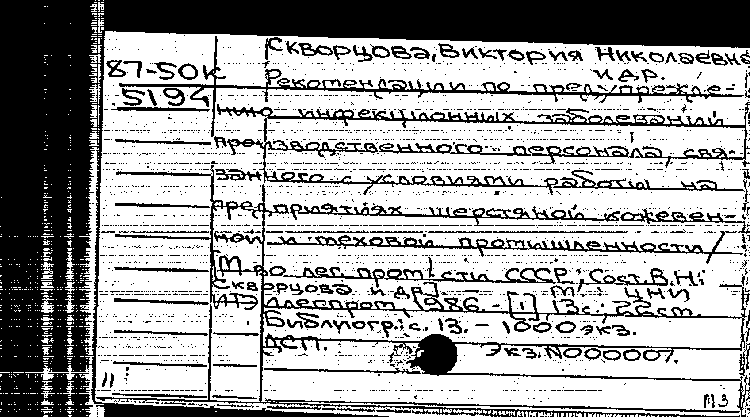 Скворцова, Виктория Николаевна
и др.
87-50к
5194
Рекомендации по предупрежде-
нию инфекционных заболеваний
производственного персонала, свя-
занного с условиями работы на
предприятиях шерстяной кожевен-
ной и меховой промышленности /
[М-во лег. пром-сти СССР; Сост. В.Н.
Скворцова и др.] - М.: ЦНИ
ИТЭИлегпром, 1986. - [1], 13 с.; 26 см.
Библиогр.: с. 13. - 1000 экз.
ДСП. Экз. N000007.
11
М3